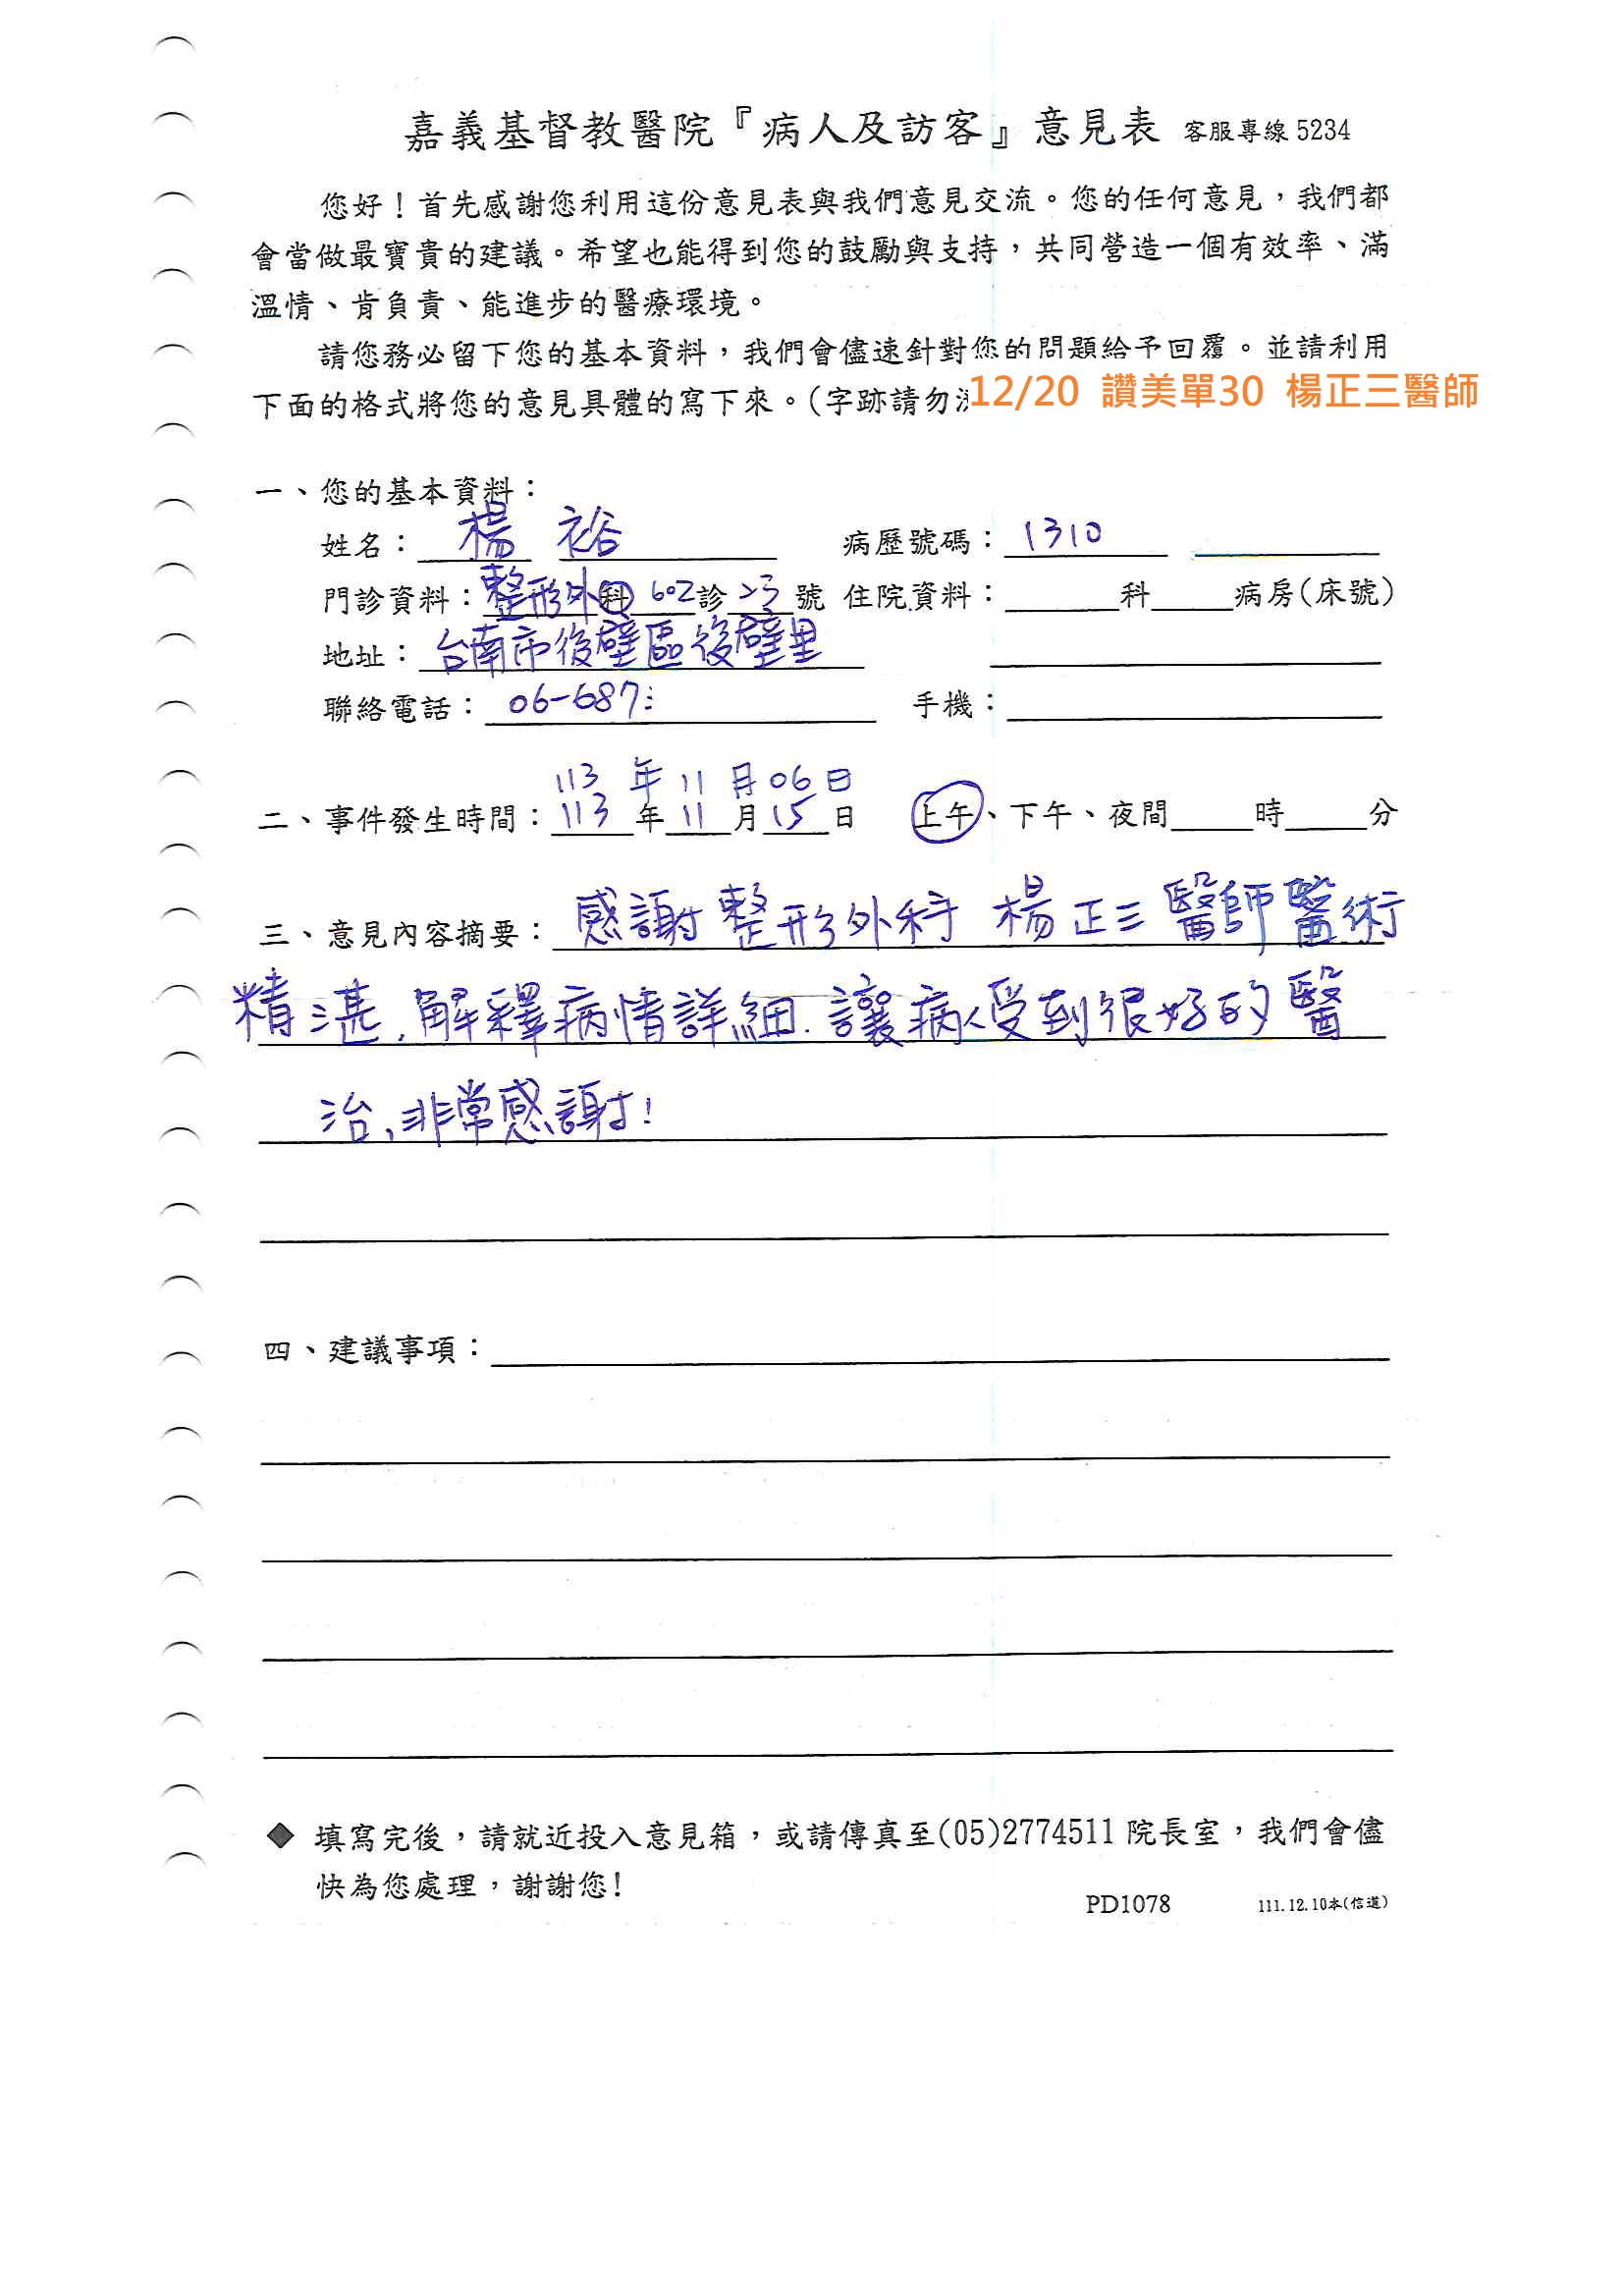 嘉義基督教醫院『病人及訪客』意見表 客服專線 5234
您好！首先感謝您利用這份意見表與我們意見交流。您的任何意見，我們都
會當做最寶貴的建議。希望也能得到您的鼓勵與支持，共同營造一個有效率、滿
溫情、肯負責、能進步的醫療環境。
請您務必留下您的基本資料，我們會儘速針對您的問題給予回覆。並請利用
下面的格式將您的意見具體的寫下來。(字跡請勿
12/20 讚美單30 楊正三醫師
一、您的基本資料：
姓名：楊 裕 病歷號碼：1310
門診資料：整形外科602診23號 住院資料：科 病房(床號)
地址：台南市後壁區後壁里
聯絡電話：06-687 手機：
113年11月06日
二、事件發生時間：113年11月15日 上午、下午、夜間 時 分
三、意見內容摘要：感謝整形外科 楊正三醫師醫術
精湛,解釋病情詳細.讓病人受到很好的醫
治,非常感謝!
四、建議事項：
◆ 填寫完後，請就近投入意見箱，或請傳真至(05)2774511院長室，我們會儘
快為您處理，謝謝您!
PD1078 111.12.10本(信道)